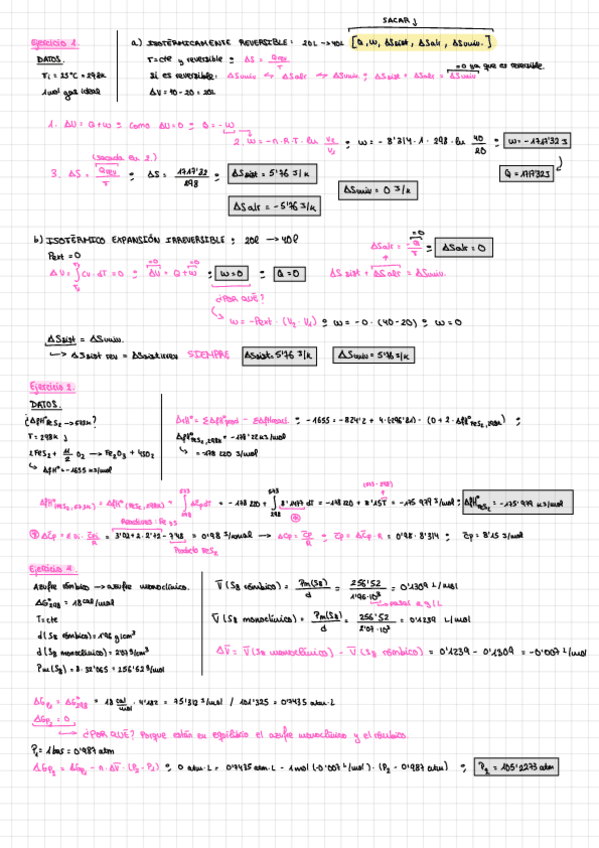 SACAR ↓
Ejercicio 1.
a) ISOTÉRMICAMENTE REVERSIBLE: 20L → 40L [Q, W, ΔSsist, ΔSalr, ΔSuniv.]
DATOS.
T=cte y reversible : ΔS = Qrev/T
=0 ya que es reversible.
T₁ = 25ºC = 298K
si es reversible: ΔSuniv ↔ ΔSalr ↔ ΔSuniv : ΔSsist + ΔSalr = ΔSuniv
1mol gas ideal
ΔV = 40 - 20 = 20L
1. ΔU = Q + W : como ΔU = 0 : Q = -W
2. W = -n·R·T·ln V₂/V₁ : W = -8'314·1·298·ln 40/20 : W = -1717'32 J
(sacada en 2.)
Q = 1717'32J
3. ΔS = Qrev/T : ΔS = 1717'32/298 : ΔSsist = 5'76 J/K
ΔSuniv = 0 J/K
ΔSalr = -5'76 J/K
b) ISOTÉRMICO EXPANSIÓN IRREVERSIBLE : 20l → 40l
Pext = 0
ΔSalr = -Q/T : ΔSalr = 0
=0
ΔU = ∫ Cv·dT = 0 : ΔU = Q + W : W = 0 : Q = 0
ΔSsist + ΔSalr = ΔSuniv.
¿POR QUÉ?
W = -Pext·(V₂-V₁) : W = -0·(40-20) : W = 0
ΔSsist = ΔSuniv.
→ ΔSsist rev = ΔSsist irrev SIEMPRE ΔSsist = 5'76 J/K ΔSuniv = 5'76 J/K
Ejercicio 2.
DATOS.
T = 298K
2FeS₂ + 11/2 O₂ → Fe₂O₃ + 4SO₂
→ ΔrHº = -1655 KJ/mol
ΔrHº = ΣΔfHºprod - ΣΔfHreact. : -1655 = -824'2 + 4·(-296'81) - (0 + 2·ΔfHºFeS₂,298K) :
ΔfHºFeS₂,298K = -178'22 KJ/mol
→ = -178 220 J/mol
(673-298)
ΔfHº(FeS₂,673K) = ΔfHº(FeS₂,298K) + ∫ ΔCp dT = -178 220 + ∫ 8'1477 dT = -178 220 + 8'15 T = -175 979 J/mol : ΔfHºFeS₂ = -175'979 KJ/mol
Producto FeS₂
Ejercicio 2.
Azufre rómbico → azufre monoclínico.
ΔGº298 = 18 cal/mol
T=cte
d (S₈ rómbico) = 1'96 g/cm³
d (S₈ monoclínico) = 2'07 g/cm³
Pm (S₈) = 8·32'065 = 256'52 g/mol
V̅ (S₈ rómbico) = Pm(S₈)/d = 256'52/1'96·10³ = 0'1309 L/mol
→ pasar a g/L
V̅ (S₈ monoclínico) = Pm(S₈)/d = 256'52/2'07·10³ = 0'1239 L/mol
ΔV̅ = V̅ (S₈ monoclínico) - V̅ (S₈ rómbico) = 0'1239 - 0'1309 = -0'007 L/mol
ΔGp₁ = ΔGº298 = 18 cal/mol · 4'182 = 75'312 J/mol / 101'325 = 0'7435 atm·L
ΔGp₂ = 0
→ ¿POR QUÉ? Porque están en equilibrio el azufre monoclínico y el rómbico.
P₁ = 1bar = 0'987 atm
ΔGp₂ = ΔGp₁ - n·ΔV̅·(P₂-P₁) : 0 atm·L = 0'7435 atm·L - 1mol (-0'007 L/mol)·(P₂ - 0'987 atm) : P₂ = 105'2273 atm